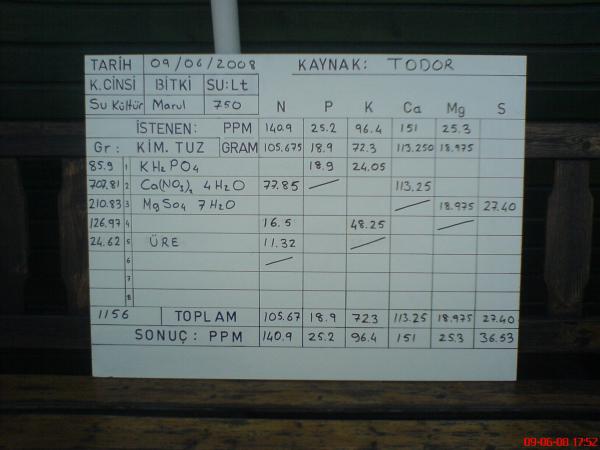 TARİH 09/06/2008 KAYNAK: TODOR
K.CİNSİ BİTKİ SU:Lt
Su Kültür Marul 750 N P K Ca Mg S
İSTENEN: PPM 140.9 25.2 96.4 151 25.3
Gr: KİM. TUZ GRAM 105.675 18.9 72.3 113.250 18.975
85.9 1 KH2PO4 18.9 24.05
707.81 2 Ca(NO3)2 4H2O 77.85 113.25
210.83 3 MgSO4 7H2O 18.975 27.40
126.97 4 16.5 48.25
24.62 5 ÜRE 11.32
6
7
8
1156 TOPLAM 105.67 18.9 723 113.25 18.975 27.40
SONUÇ: PPM 140.9 25.2 96.4 151 25.3 36.53
09-06-08 17:52